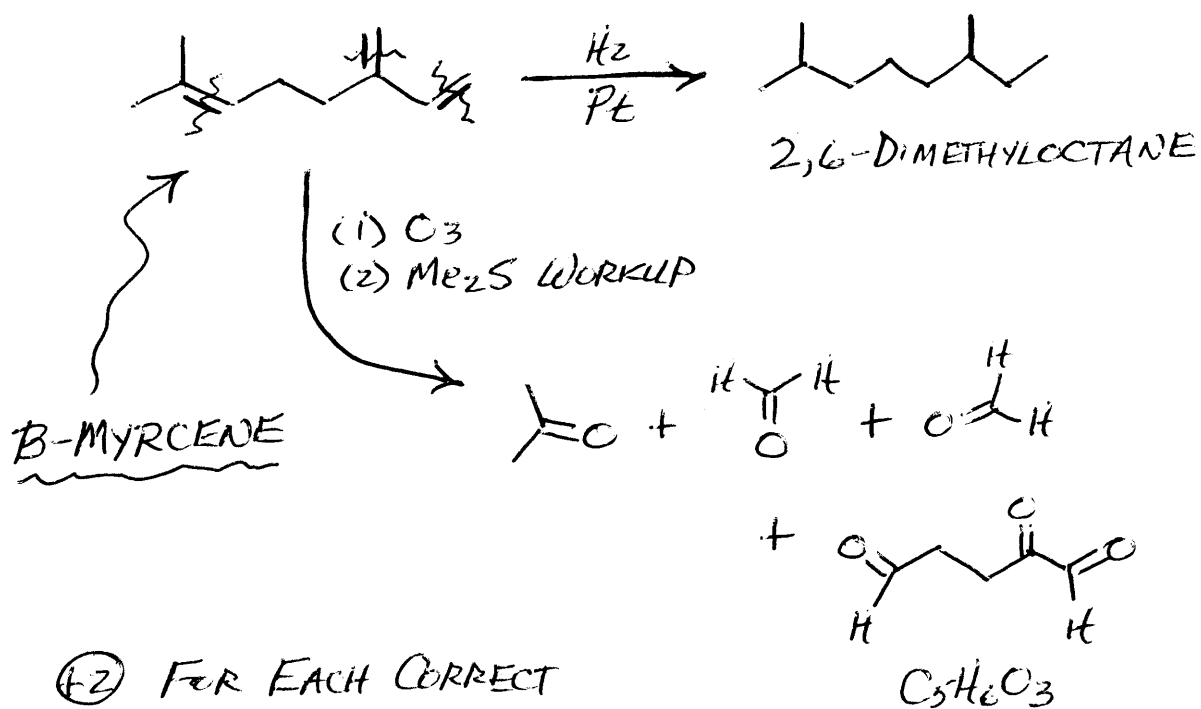 H2
Pt
2,6-DIMETHYLOCTANE
(1) O3
(2) Me2S WORKUP
β-MYRCENE
O + H H O + H O H
+ O H O O H
C5H6O3
+2 FOR EACH CORRECT